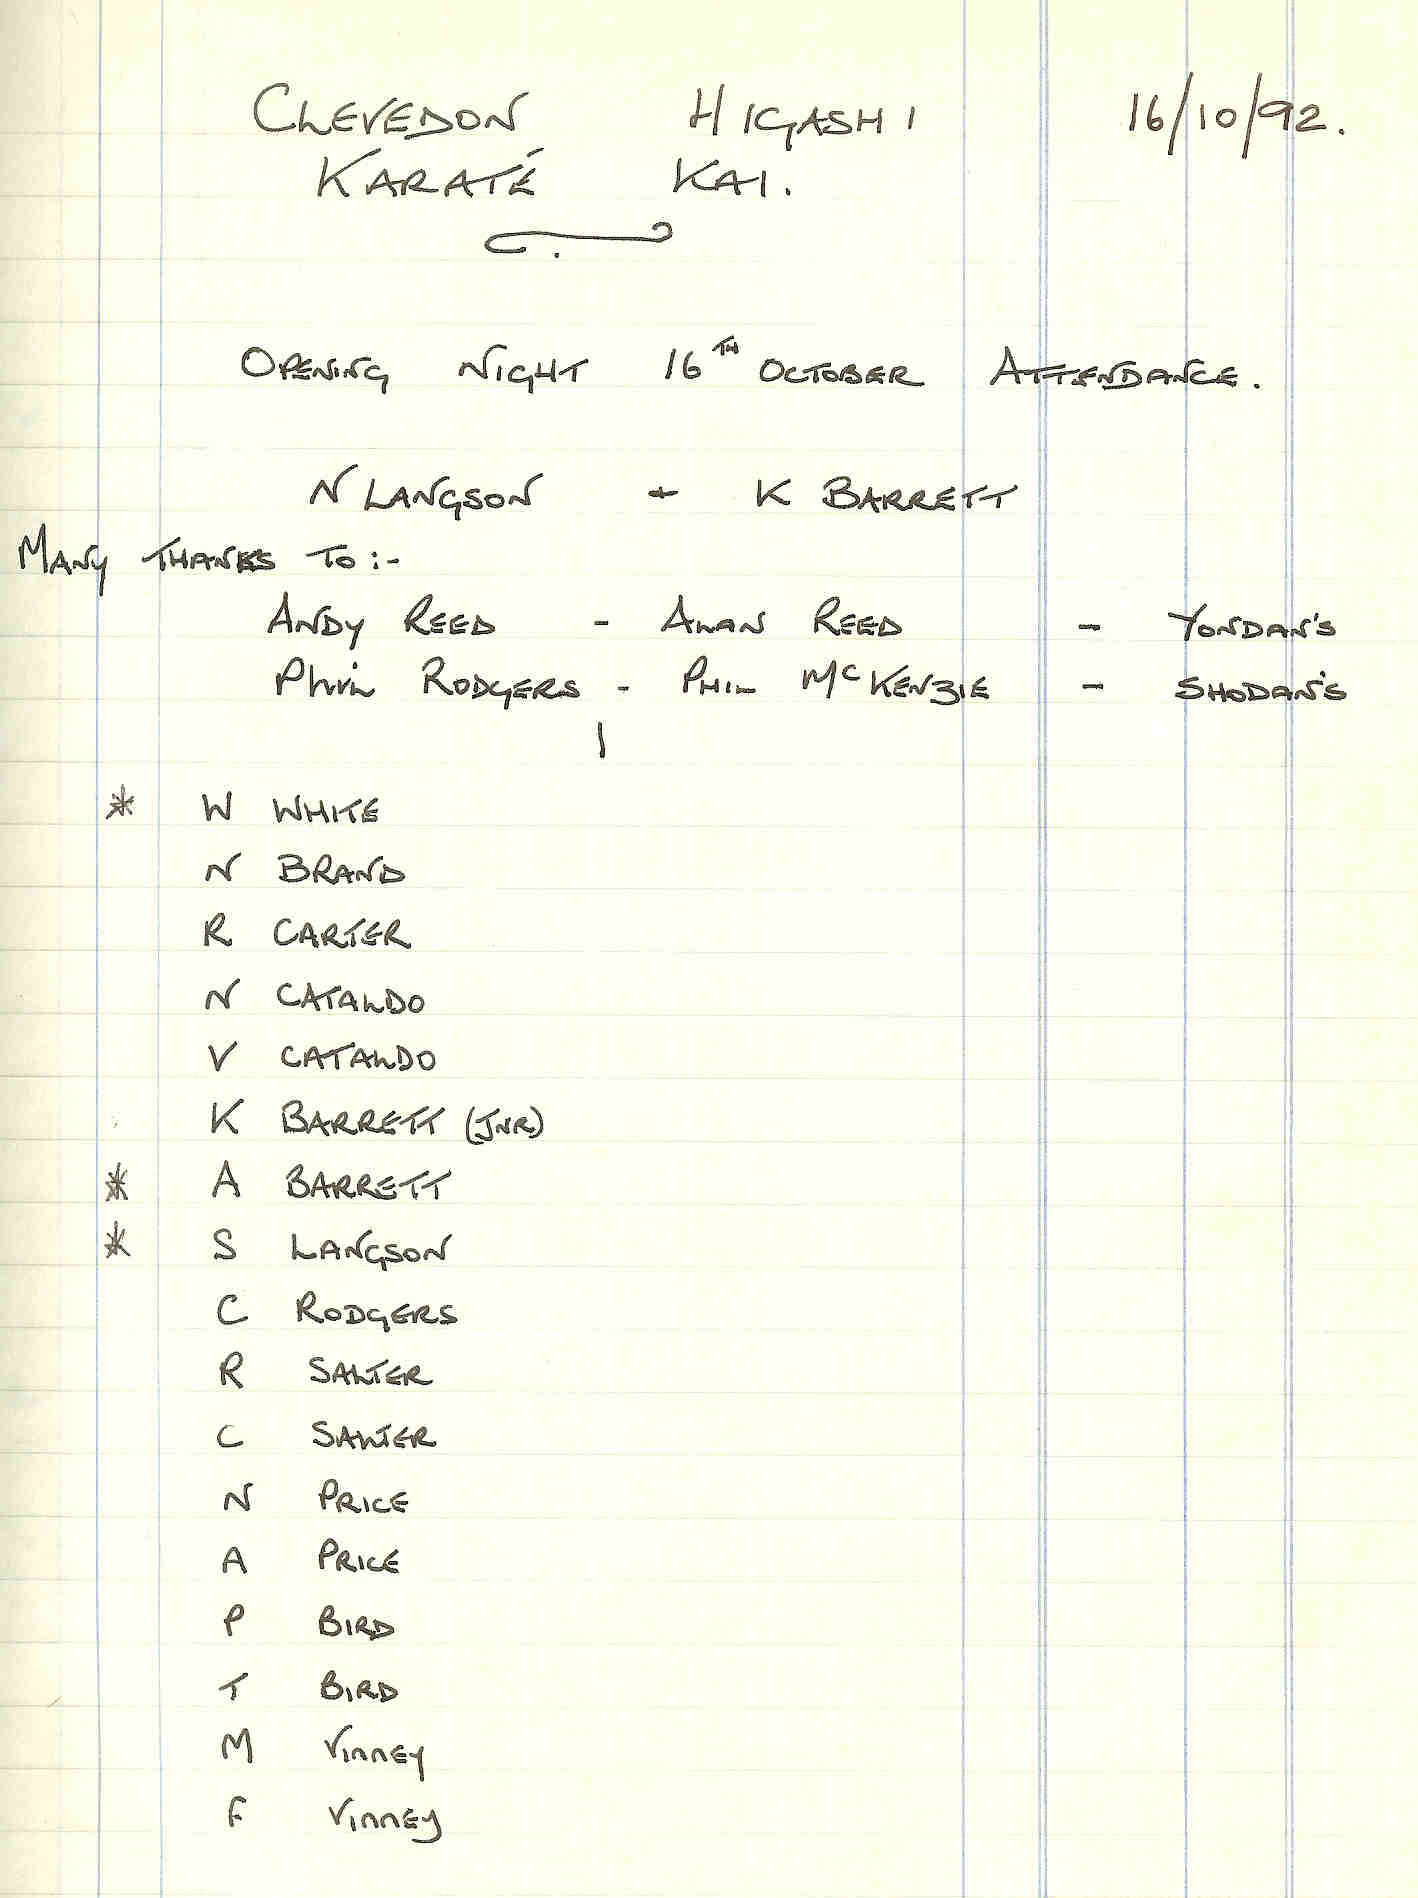 CLEVEDON HIGASHI 16/10/92.
KARATÉ KAI.
OPENING NIGHT 16TH OCTOBER ATTENDANCE.
N LANGSON + K BARRETT
MANY THANKS TO:-
ANDY REED - ALAN REED - YONDAN'S
PHIL RODGERS - PHIL MCKENZIE - SHODAN'S
* W WHITE
N BRAND
R CARTER
N CATALDO
V CATALDO
K BARRETT (JNR)
* A BARRETT
* S LANGSON
C RODGERS
R SALTER
C SALTER
N PRICE
A PRICE
P BIRD
T BIRD
M VINNEY
F VINNEY